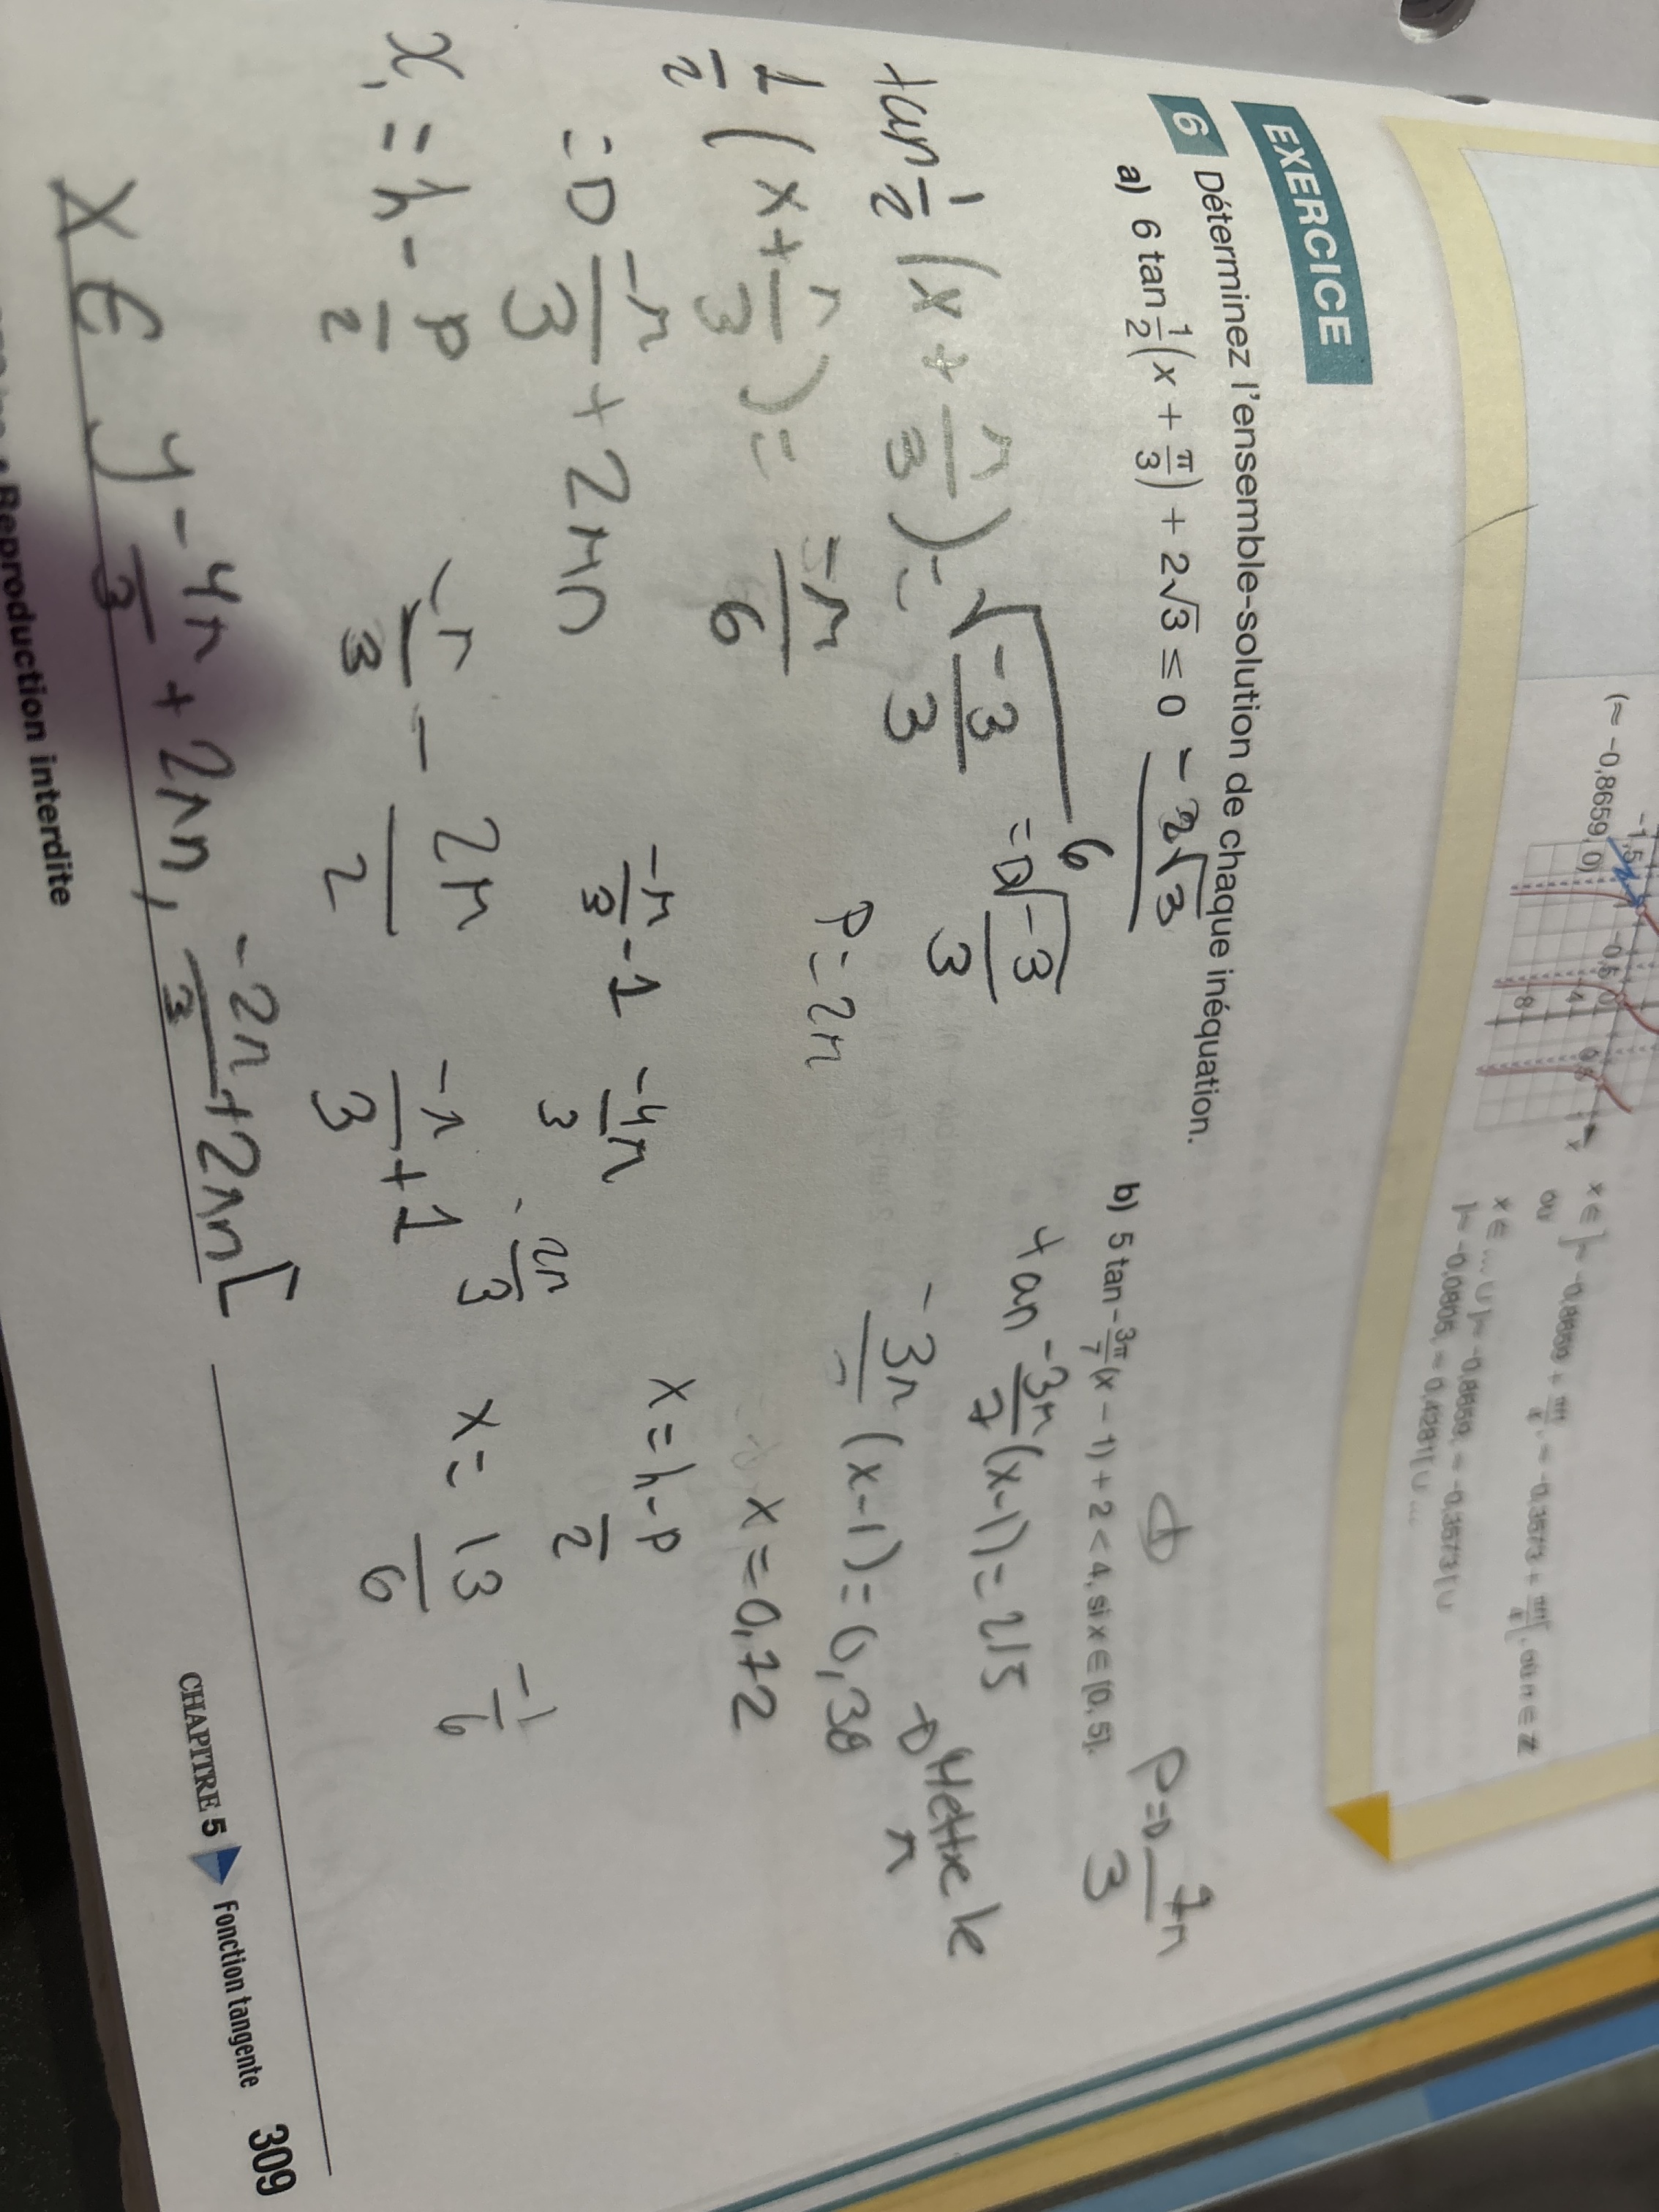 (≈ −0,8659, 0)
−1,5
−0,5
4
8
x
x ∈ ]≈ −0,8659 +
, ≈ −0,3573 +
[, où n ∈ ℤ
ou
x ∈ ... ∪ ]≈ −0,8659, ≈ −0,3573[ ∪
]≈ −0,0805, ≈ 0,4281[ ∪ ...
EXERCICE
6 Déterminez l'ensemble-solution de chaque inéquation.
a) 6 tan 1/2 (x + π/3) + 2√3 ≤ 0 − 2√3
6
tan 1/2 (x + π/3) = √−3/3 =D √−3/3
1/2 (x + π/3) = −π/6 P = 2π
=D −π/3 + 2πn −π/3 − 1 −4π/3
x₁ = h − P/2 −π/3 − 2π/2 −π/3 + 1 −2π/3
x ∈ ]−4π/3 + 2πn, −2π/3 + 2πn[
b) 5 tan −3π/7 (x − 1) + 2 < 4, si x ∈ [0, 5].
P =D 7π/3
tan −3π/7 (x−1) = 2/5
−D Mettre le π
−3π/7 (x−1) = 0,38
x = 0,72
x = h − P/2
x = 13/6 −1/6
CHAPITRE 5 Fonction tangente 309
Reproduction interdite